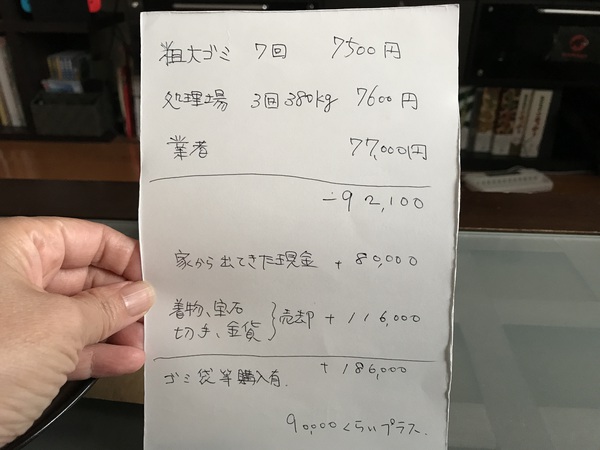 粗大ゴミ 7回 7500円
処理場 3回380kg 7600円
業者 77,000円
-92,100
家から出てきた現金 + 80,000
着物、宝石
切手、金貨 }売却 + 116,000
+ 186,000
ゴミ袋等購入有.
90,000くらいプラス.